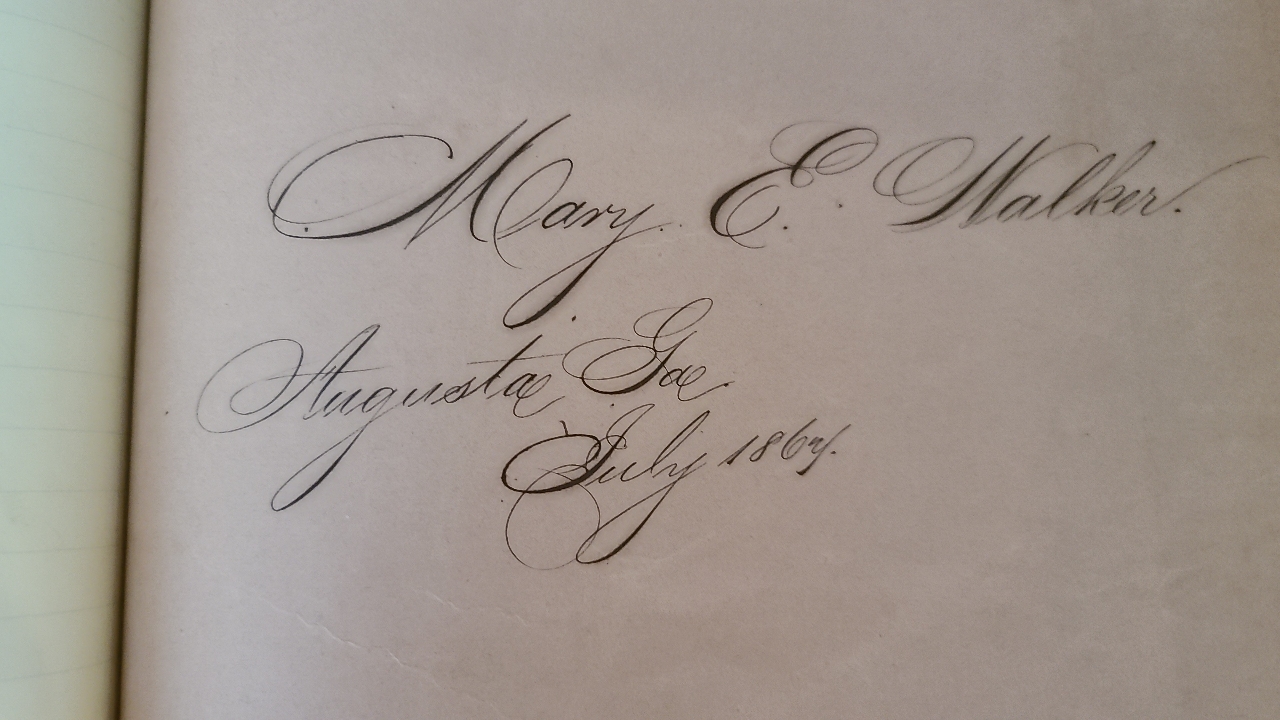 Mary. E. Walker.
Augusta, Ga.
July 1867.